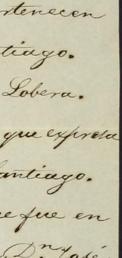 rtenecen
tiago.
Lobera.
que expresa
antiago.
e fue en
Dn José